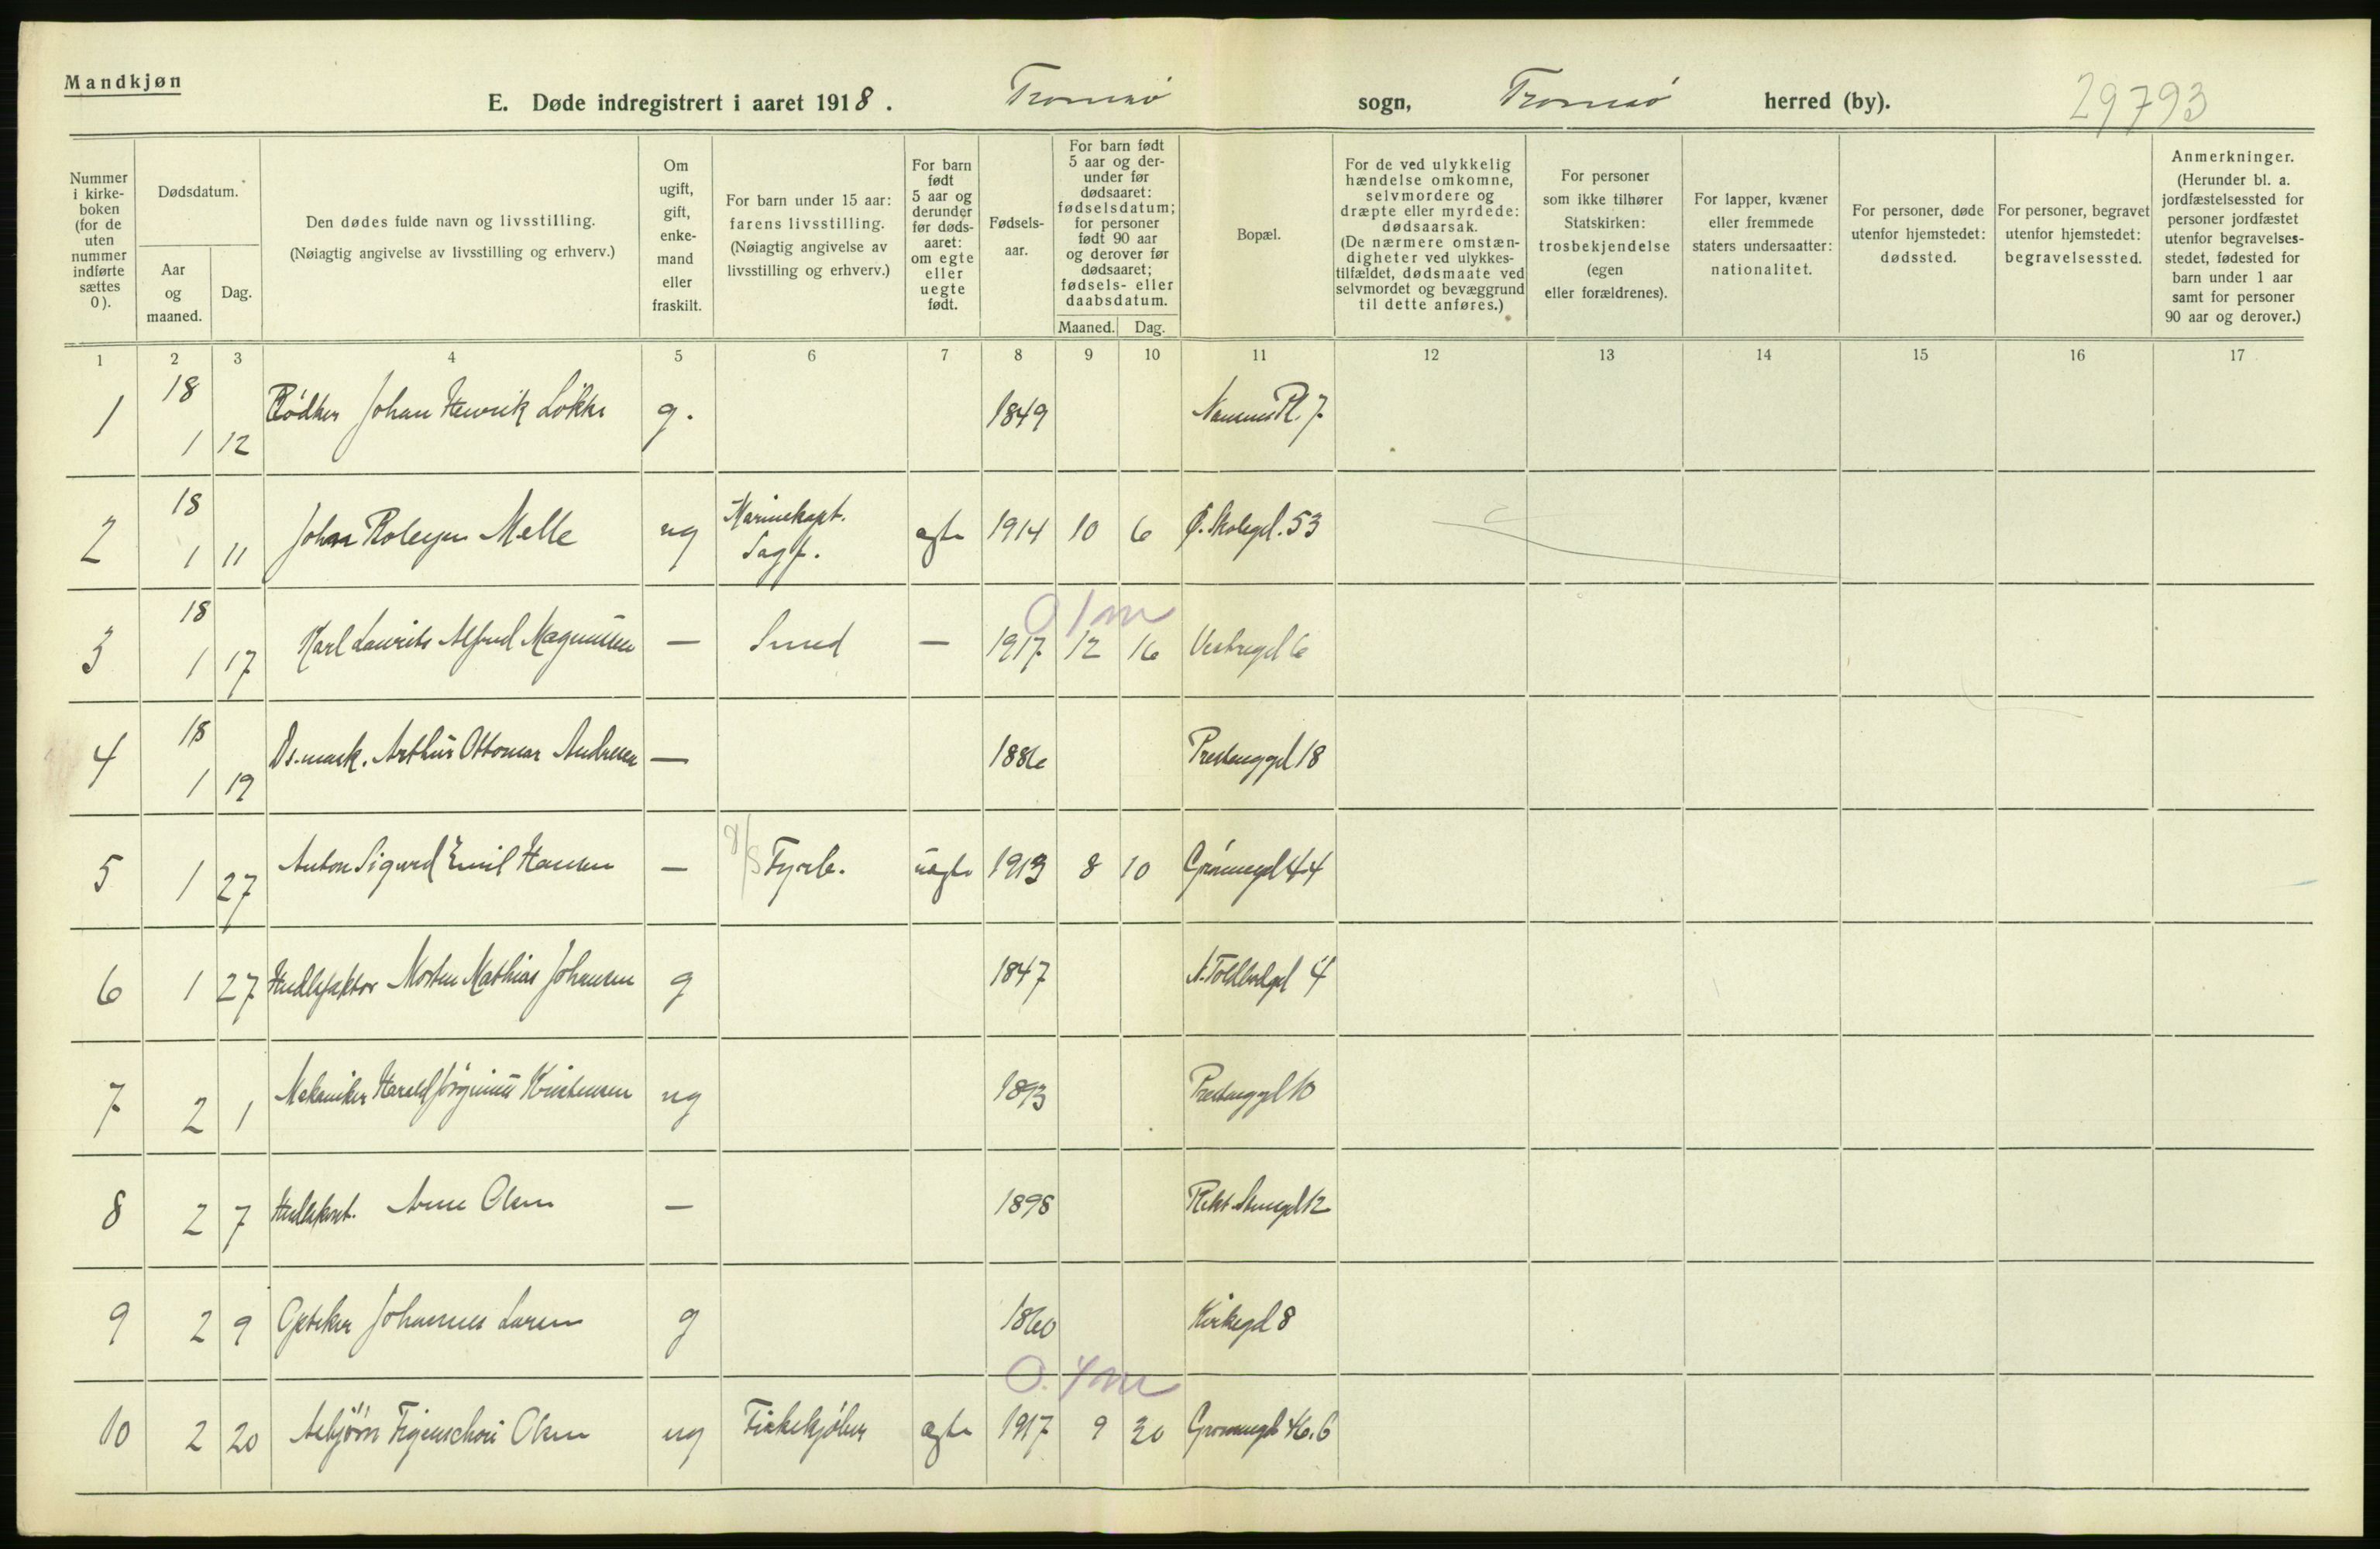 Mandkjøn
E. Døde indregistrert i aaret 1918. Tromsø sogn, Tromsø herred (by). 29793
Nummer i kirke-boken (for de uten nummer indførte sættes 0).
Dødsdatum.
Aar og maaned.
Dag.
Den dødes fulde navn og livsstilling.
(Nøiagtig angivelse av livsstilling og erhverv.)
Om ugift, gift, enke-mand eller fraskilt.
For barn under 15 aar: farens livsstilling. (Nøiagtig angivelse av livsstilling og erhverv.)
For barn født 5 aar og derunder før døds-aaret: om egte eller uegte født.
Fødsels-aar.
For barn født 5 aar og der-under før dødsaaret: fødselsdatum; for personer født 90 aar og derover før dødsaaret; fødsels- eller daabsdatum.
Maaned. Dag.
Bopæl.
For de ved ulykkelig hændelse omkomne, selvmordere og dræpte eller myrdede: dødsaarsak. (De nærmere omstæn-digheter ved ulykkes-tilfældet, dødsmaate ved selvmordet og bevæggrund til dette anføres.)
For personer som ikke tilhører Statskirken: trosbekjendelse (egen eller forældrenes).
For lapper, kvæner eller fremmede staters undersaatter: nationalitet.
For personer, døde utenfor hjemstedet: dødssted.
For personer, begravet utenfor hjemstedet: begravelsessted.
Anmerkninger. (Herunder bl. a. jordfæstelsessted for personer jordfæstet utenfor begravelses-stedet, fødested for barn under 1 aar samt for personer 90 aar og derover.)
1 2 3 4 5 6 7 8 9 10 11 12 13 14 15 16 17
1 18 1 12 Bødker Johan Henrik Løkke g. 1849 Nansens Pl. 7
2 18 1 11 John Melle ug Marinekapt. Sagf. egte 1914 10 6 Ø. Skolegd. 53
0 1 m
3 18 1 17 Karl Laurits Alfred Magnussen — Smed — 1917 12 16 Vestregd 6
4 18 1 19 Arthur Ottomar Andresen — 1886 Prestenggd 18
5 1 27 Anton Sigurd Emil Hansen — Fyrb. uegte 1913 8 10 Grønnegd 44
6 1 27 Morten Mathias Johansen g 1847 N. Toldbodgd 4
7 2 1 Mekaniker Harald Jørginius Kristensen ug 1893 Prestenggd 10
8 2 7 Arne Olsen — 1898 12
9 2 9 Johannes Larsen g 1860 Kirkegd 8
0. 4 m
10 2 20 Asbjørn Figenschou Olsen ug Fiskekjøber egte 1917 9 20 Grønnegd 46.6